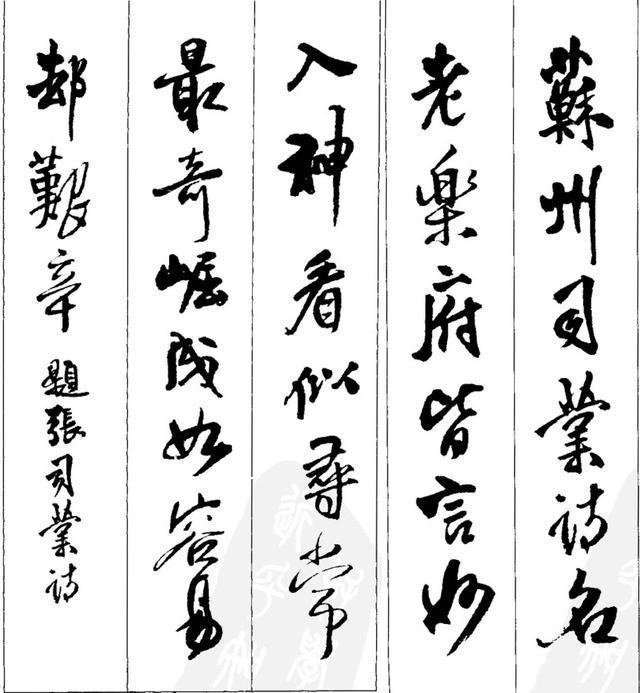 蘇州司業诗名
老樂府皆言妙
入神看似尋常
最奇崛成如容易
却艱辛 題張司業诗